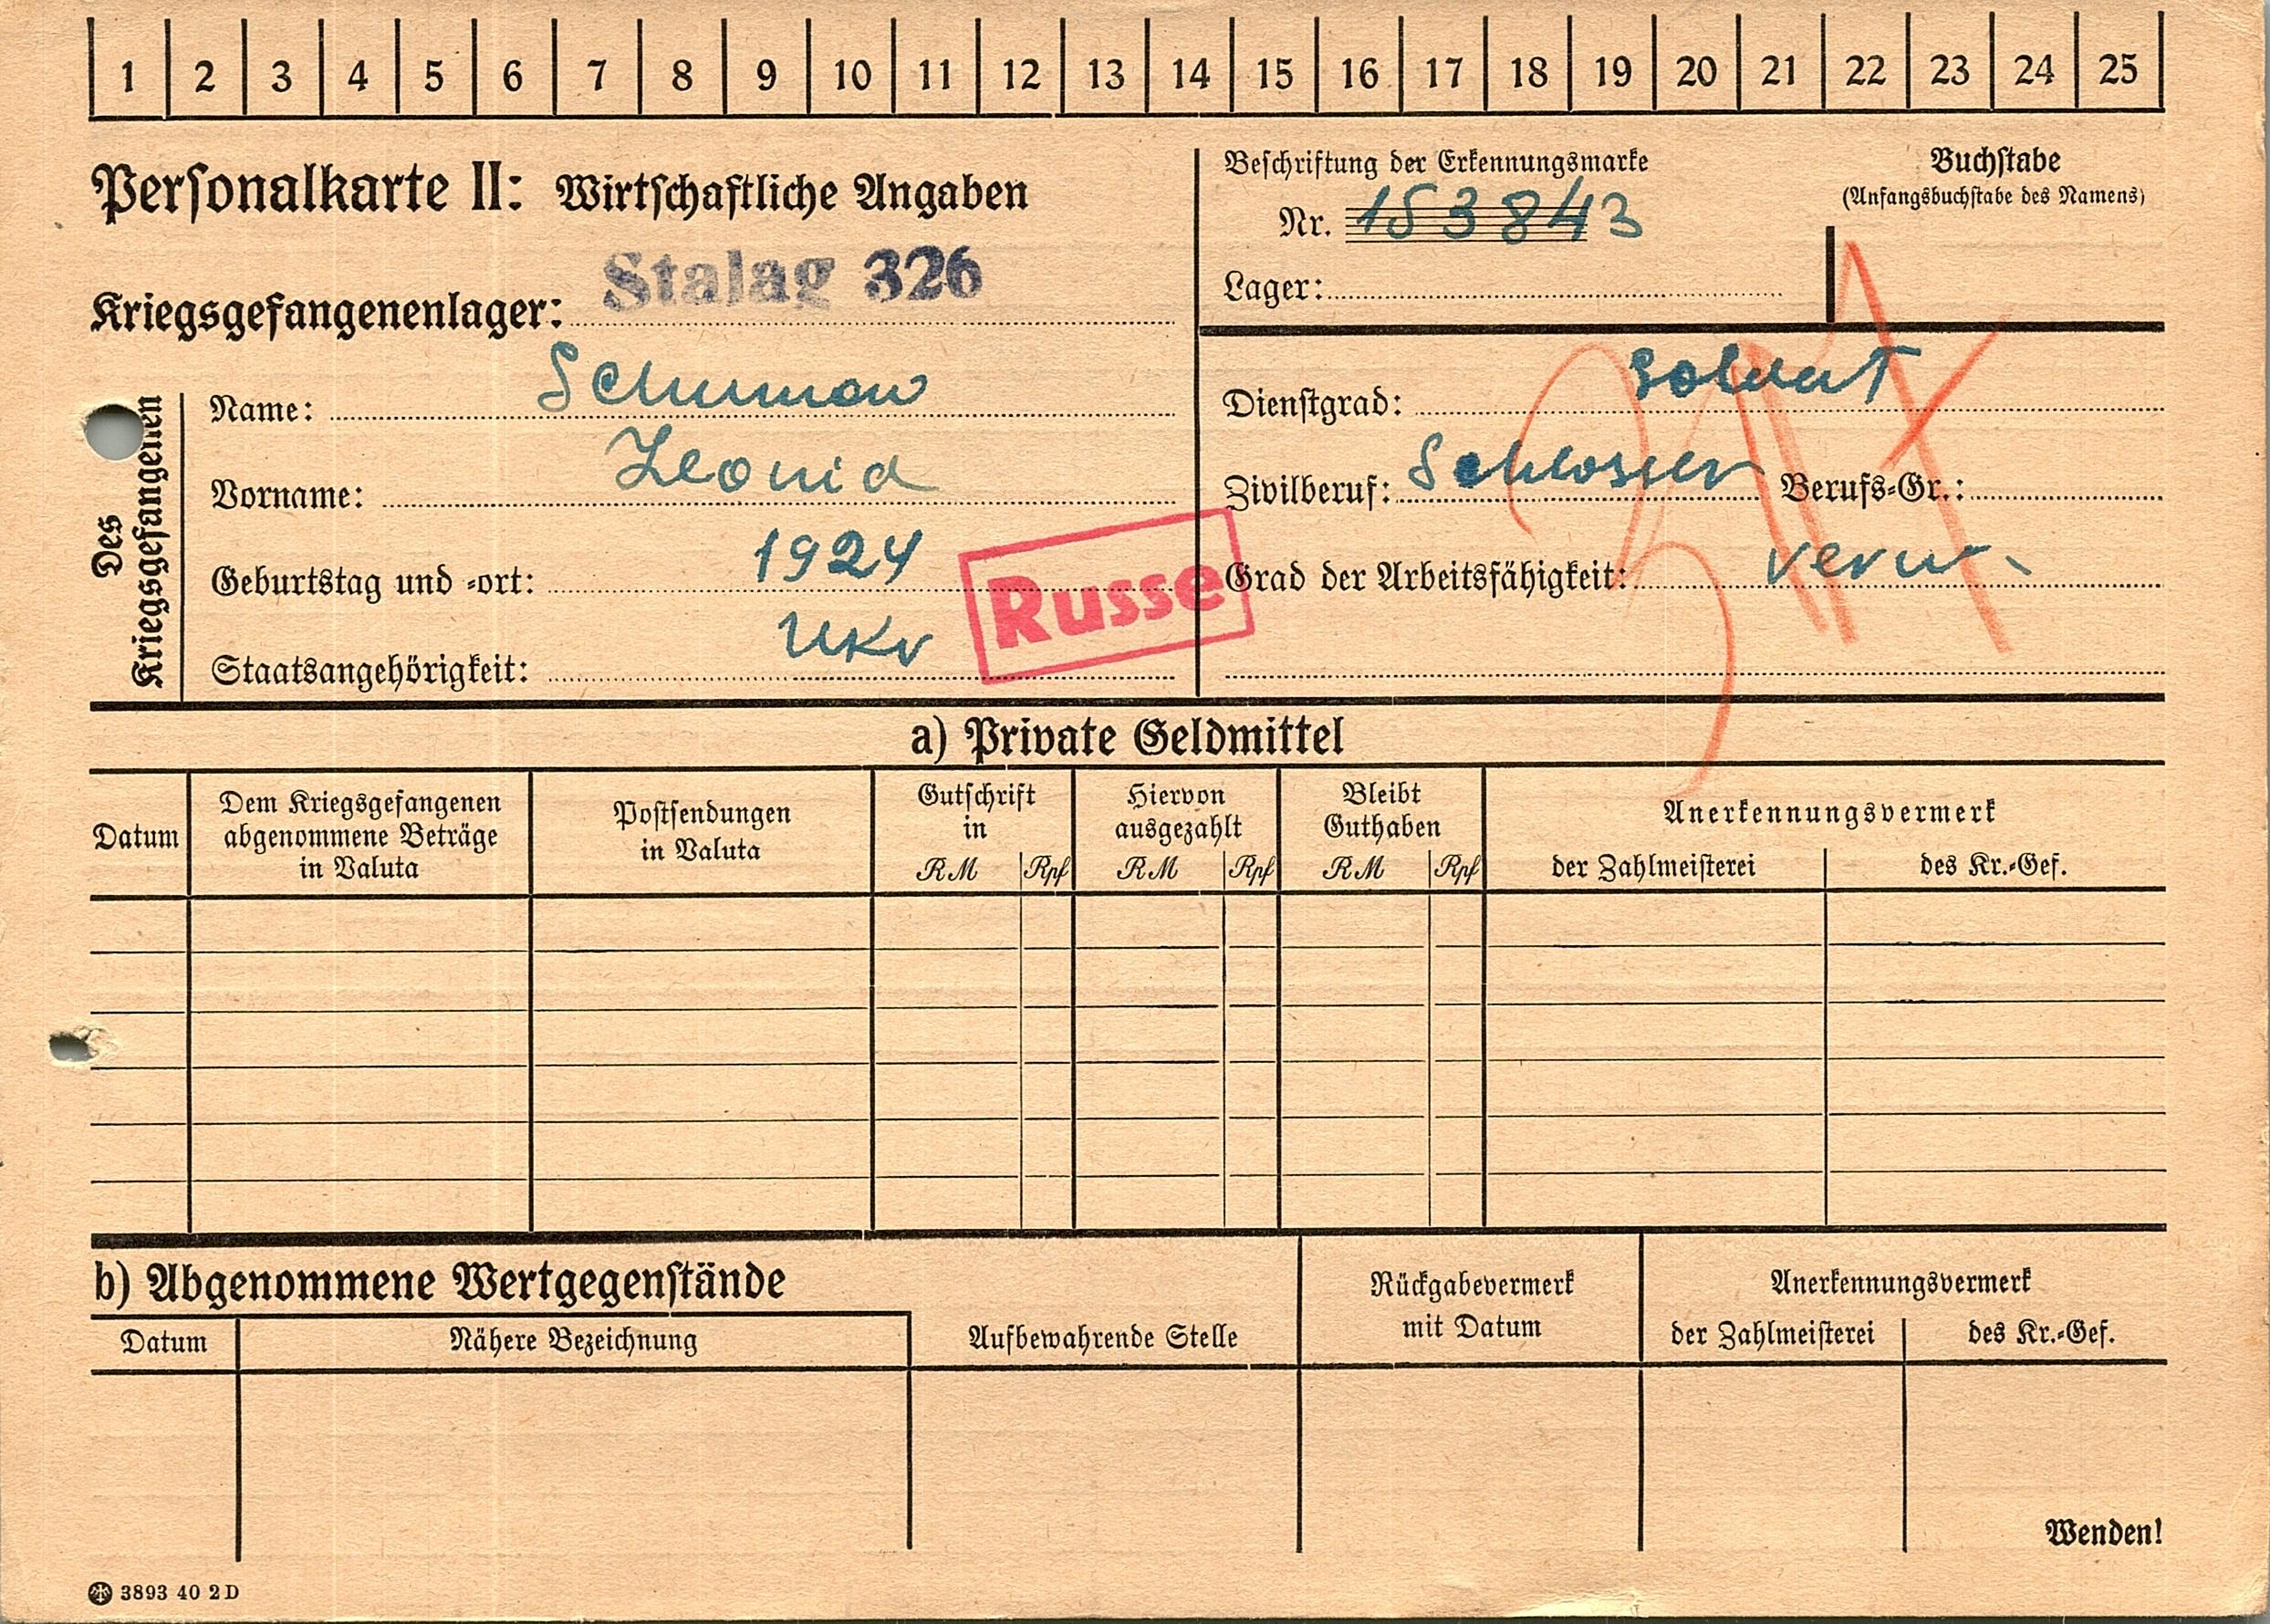 1 2 3 4 5 6 7 8 9 10 11 12 13 14 15 16 17 18 19 20 21 22 23 24 25
Personalkarte II: Wirtschaftliche Angaben
Kriegsgefangenenlager: Stalag 326
Beschriftung der Erkennungsmarke
Nr. 153843
Lager:
Buchstabe
(Anfangsbuchstabe des Namens)
Des Kriegsgefangenen
Name: Schumow
Vorname: Leonid
Geburtstag und -ort: 1924
Staatsangehörigkeit: Ukr
Russe
Dienstgrad: Soldat
Zivilberuf: Schlosser Berufs-Gr.:
Grad der Arbeitsfähigkeit: verw.
a) Private Geldmittel
Datum
Dem Kriegsgefangenen
abgenommene Beträge
in Valuta
Postsendungen
in Valuta
Gutschrift
in
RM Rpf
Hiervon
ausgezahlt
RM Rpf
Bleibt
Guthaben
RM Rpf
Anerkennungsvermerk
der Zahlmeisterei des Kr.-Gef.
b) Abgenommene Wertgegenstände
Datum Nähere Bezeichnung
Aufbewahrende Stelle
Rückgabevermerk
mit Datum
Anerkennungsvermerk
der Zahlmeisterei des Kr.-Gef.
Wenden!
3893 40 2D